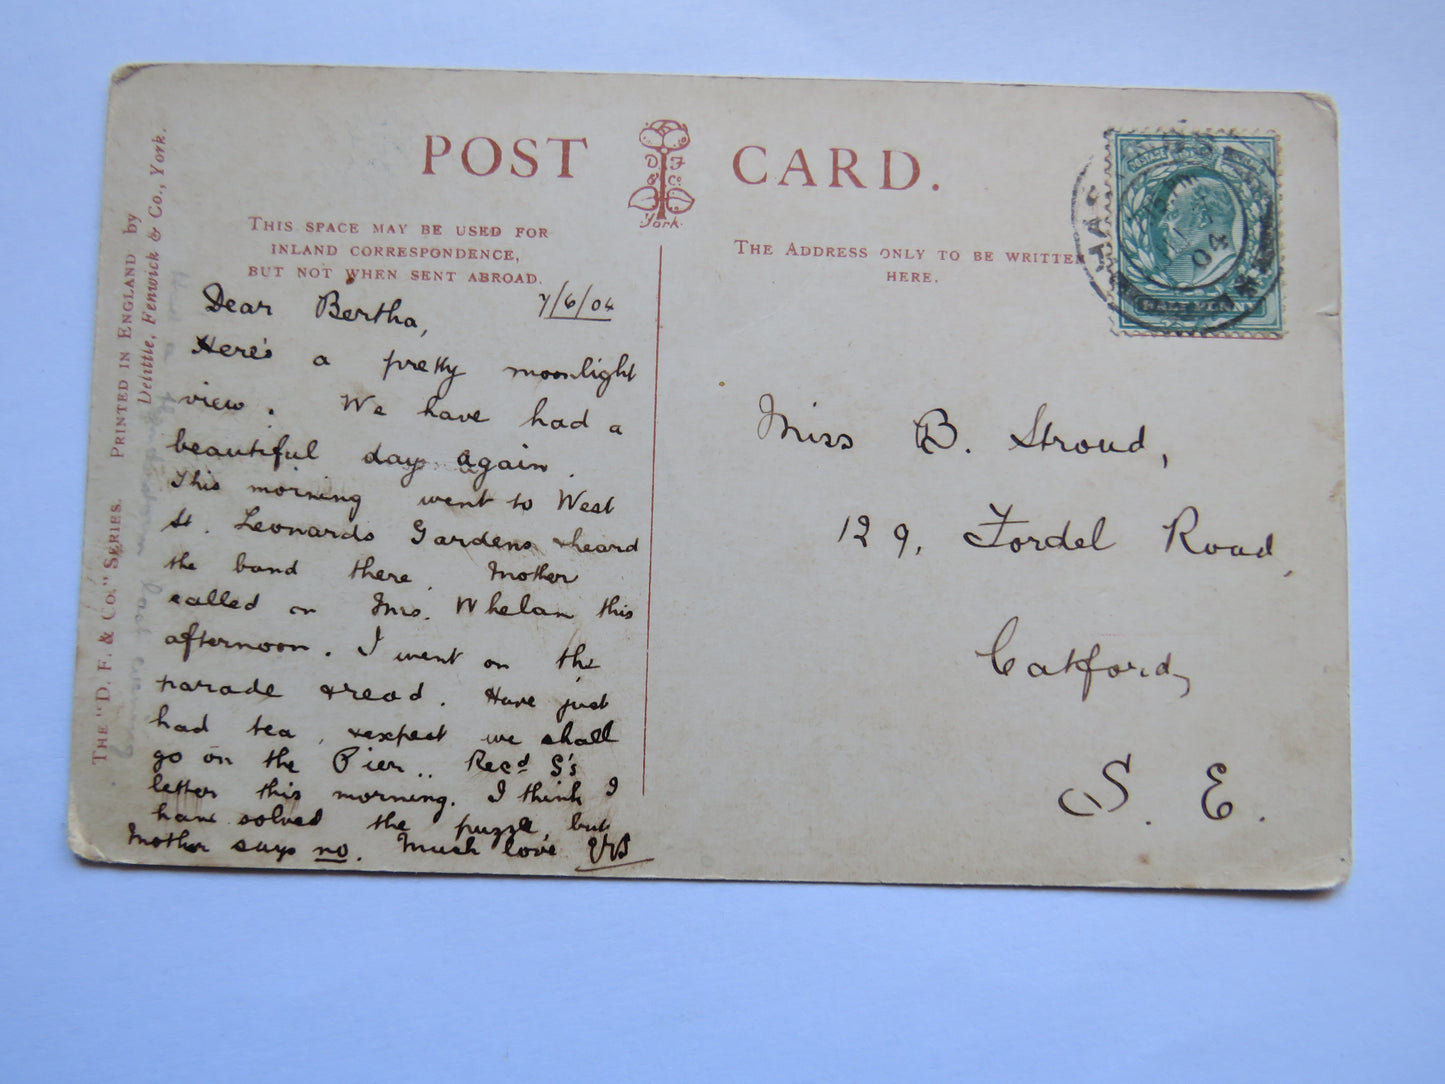 POST CARD.
D. F. & Co. York.
THIS SPACE MAY BE USED FOR
INLAND CORRESPONDENCE,
BUT NOT WHEN SENT ABROAD.
THE ADDRESS ONLY TO BE WRITTEN
HERE.
PRINTED IN ENGLAND by
Delittle, Fenwick & Co., York.
THE "D. F. & CO." SERIES.
7/6/04
Dear Bertha,
Here's a pretty moonlight
view. We have had a
beautiful day again.
This morning went to West
St. Leonards Gardens & heard
the band there. Mother
called on Mrs. Whelan this
afternoon. I went on the
parade & read. Have just
had tea, & expect we shall
go on the Pier.. Recd S's
letter this morning. I think I
have solved the puzzle, but
Mother says no. Much love
Miss B. Stroud,
129, Fordel Road,
Catford,
S. E.
HAS
04